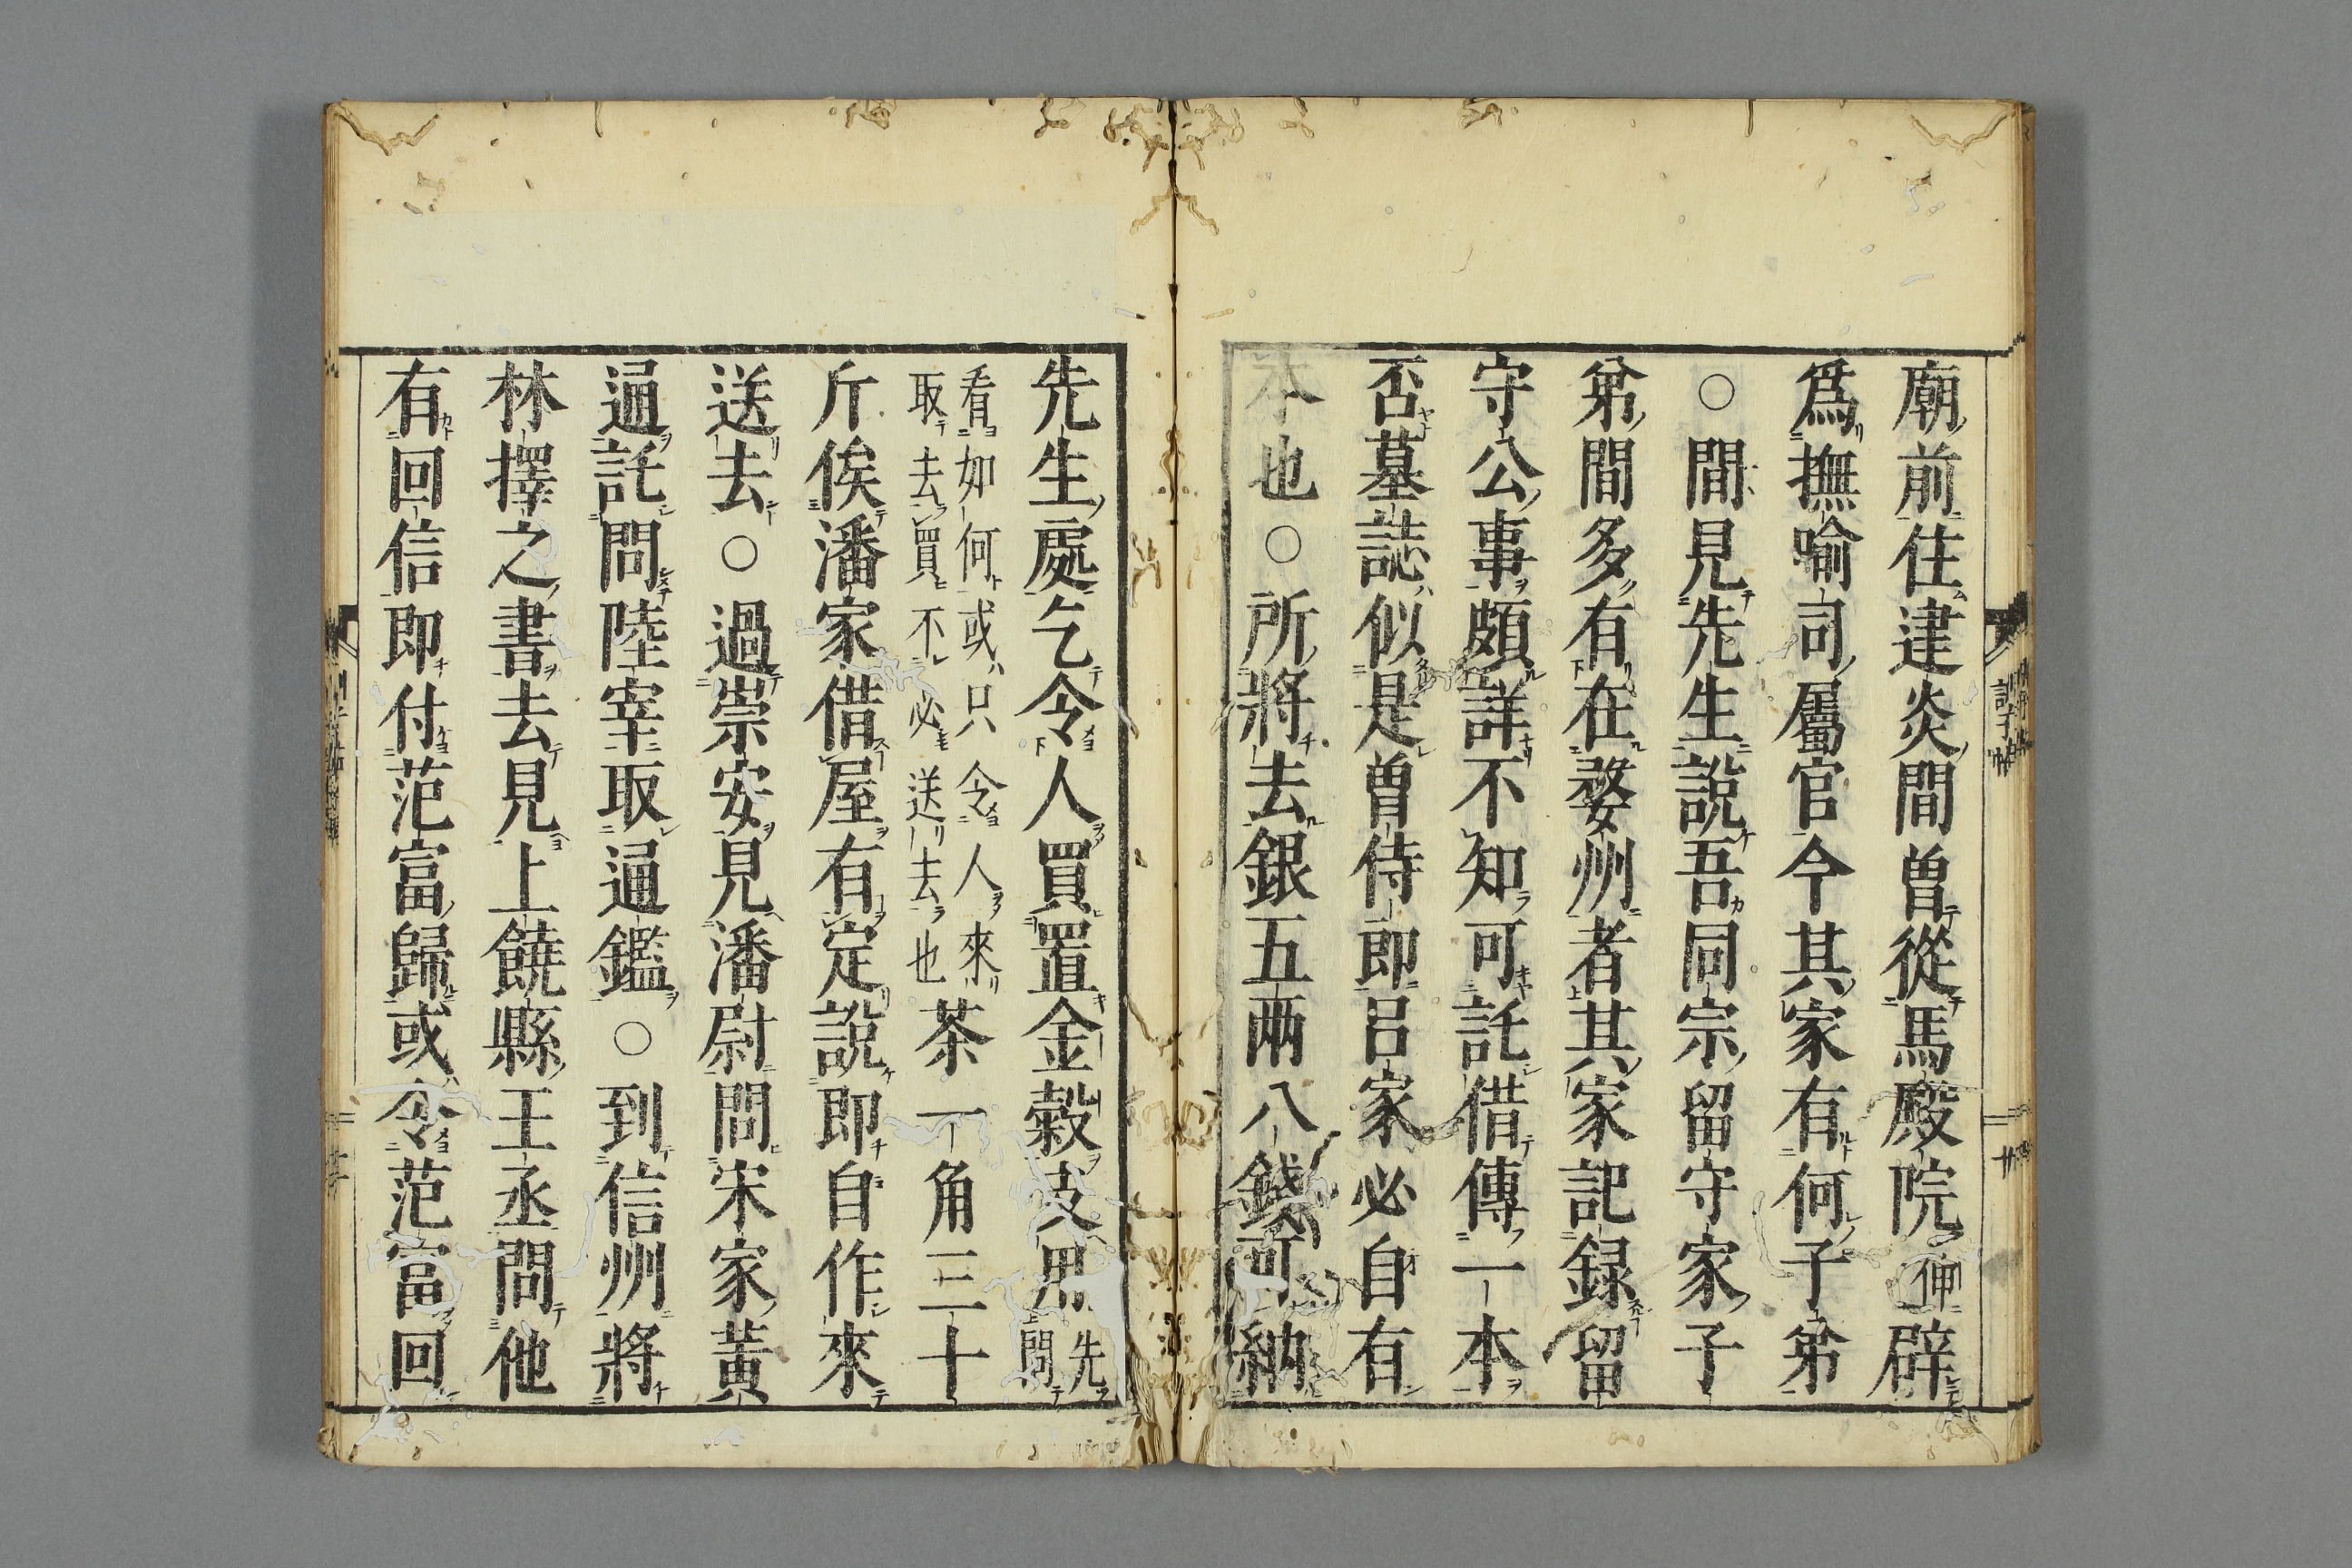 廟前住建炎間曽從馬殿院伸辟
爲撫喻司屬官今其家有何子弟
○間見先生說吾同宗留守家子
弟間多有在婺州者其家記録留
守公事頗詳不知可託借傳一本
否墓誌似是曽侍即呂家必自有
本也○所將去銀五兩八錢可納
先生處乞令人買置金穀皮 先
問
看如何或只令人來
取去買不必送去也
茶一角三十
斤俟潘家借屋有定說即自作來
送去○過崇安見潘尉問宋家黃
過託問陸宰取通鑑○到信州將
林擇之書去見上饒縣王丞問他
有回信即付范富歸或令范富回